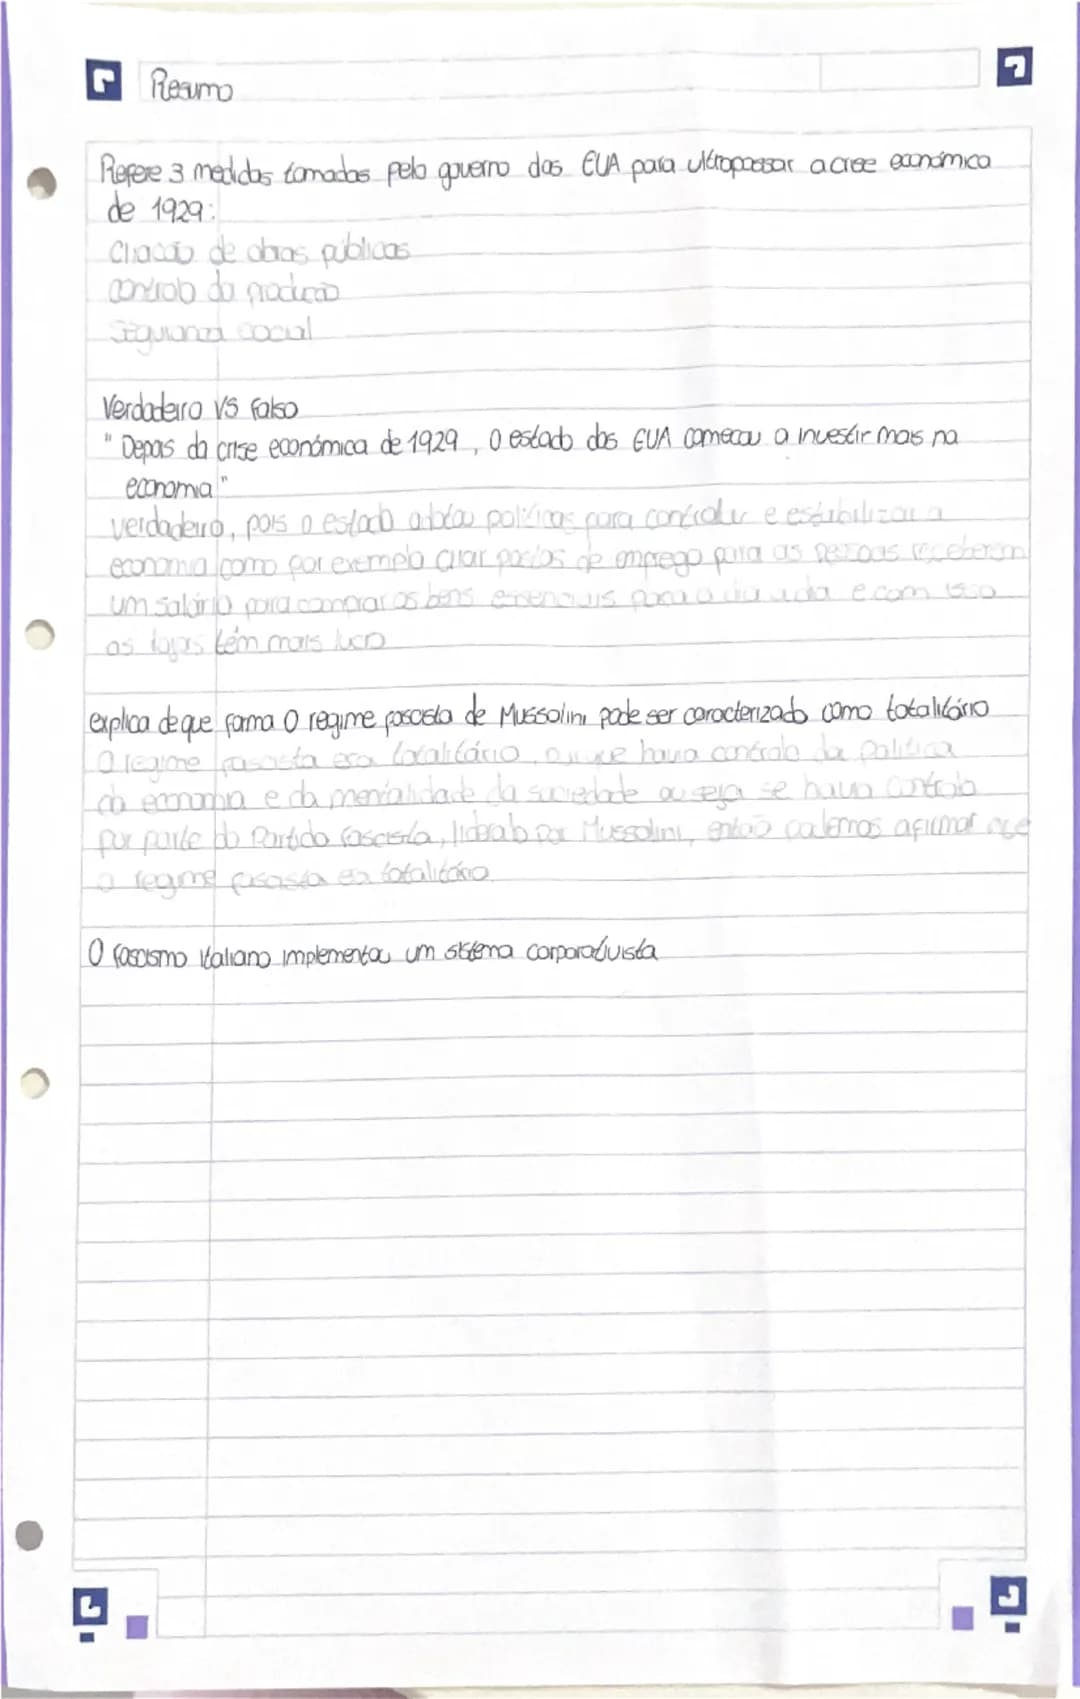 Resumo
Refere 3 medidas tomadas pelo governo dos EUA para ultrapassar a crise económica
de 1929:
Criação de obras públicas
controlo da produção
Segurança social
Verdadeiro VS falso
"Depois da crise económica de 1929, o estado dos EUA começou a investir mais na
economia"
verdadeiro, pois o estado adotou políticas para controlar e estabilizar a
economia como por exemplo criar postos de emprego para as pessoas receberem
um salário para comprar os bens essenciais para a dia vida e com isso
as lojas têm mais lucro
explica de que forma O regime fascista de Mussolini pode ser caracterizado como totalitário
O regime fascista era totalitário, havia controlo da política
da economia e da mentalidade da sociedade ou seja se havia controlo
por parte do Partido fascista, liderado por Mussolini, então podemos afirmar que
o regime fascista era totalitário
O fascismo italiano implementou um sistema corporativista